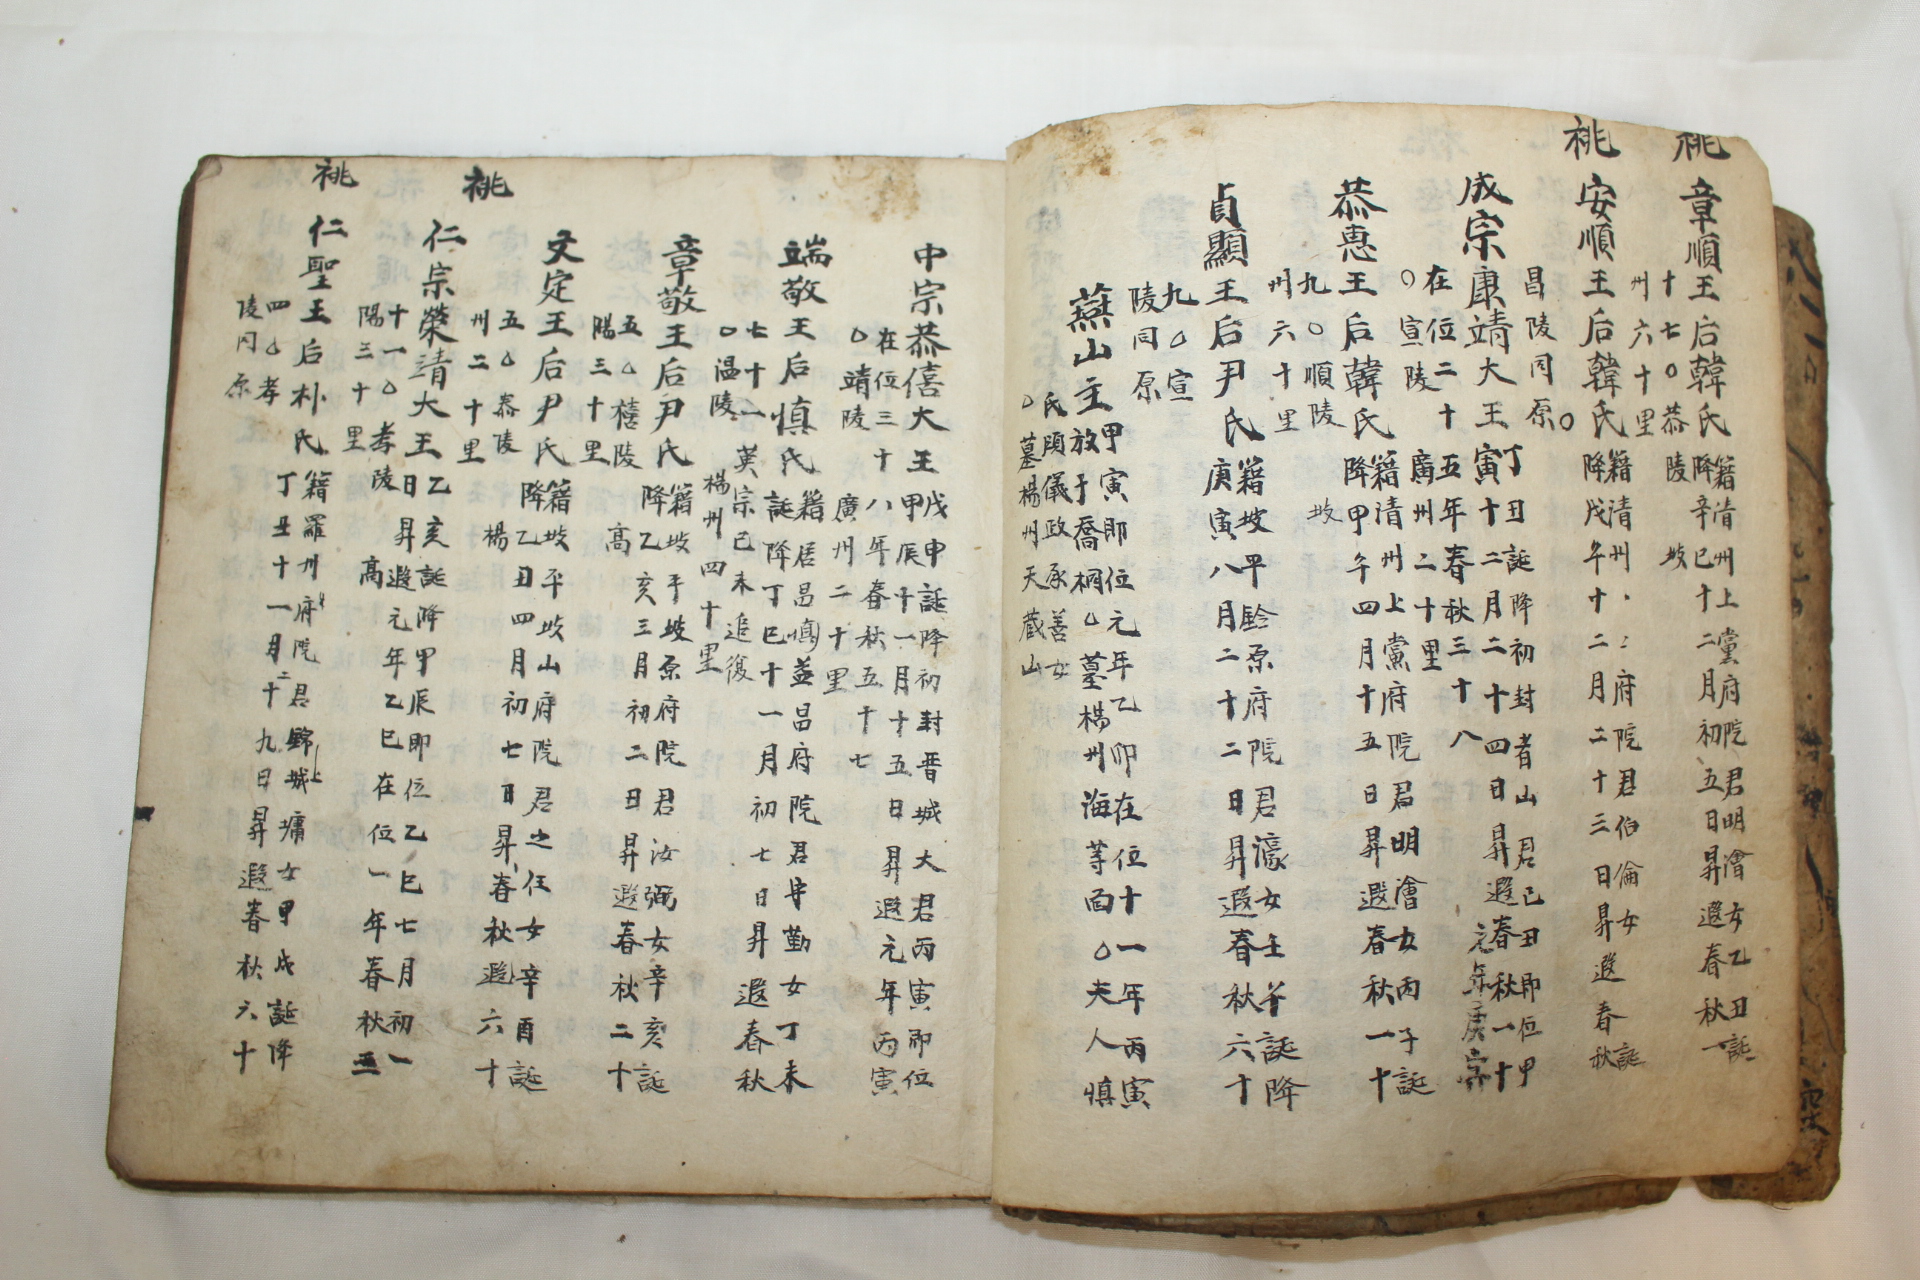 祧
章順王后韓氏
籍清州上黨府院君明澮女乙丑誕
降辛巳十二月初五日昇遐春秋一
十七○恭陵 坡
州六十里
祧
安順王后韓氏
籍清州府院君伯倫女誕
降戊午十二月二十三日昇遐春秋
○
昌陵同原
成宗康靖大王
丁丑誕降初封者山君己丑即位甲
寅十二月二十四日昇遐春秋一十
元年庚寅
在位二十五年春秋三十八
○宣陵 廣州二十里
恭惠王后韓氏
籍清州上黨府院君明澮女丙子誕
降甲午四月十五日昇遐春秋一十
九○順陵 坡
州六十里
貞顯王后尹氏
籍坡平鈴原府院君濠女壬午誕降
庚寅八月二十二日昇遐春秋六十
九○宣
陵同原
燕山主
甲寅即位元年乙卯在位十一年丙寅
放于喬桐○墓楊州海等面○夫人愼
氏領議政承善女
○墓楊州天藏山
中宗恭僖大王
戊申誕降初封晋城大君丙寅即位
甲辰十一月十五日昇遐元年丙寅
在位三十八年春秋五十七
○靖陵 廣州二十里
端敬王后愼氏
籍居昌愼益昌府院君守勤女丁未
誕降丁巳十一月初七日昇遐春秋
七十一英宗己未追復
○温陵 楊州四十里
章敬王后尹氏
籍坡平坡原府院君汝弼女辛亥誕
降乙亥三月初二日昇遐春秋二十
五○禧陵 高
陽三十里
文定王后尹氏
籍坡平坡山府院君之任女辛酉誕
降乙丑四月初七日昇春秋遐六十
五○泰陵 楊
州二十里
祧
仁宗榮靖大王
乙亥誕降甲辰即位乙巳七月初一
日昇遐元年乙巳在位一年春秋三
十一○孝陵 高
陽三十里
祧
仁聖王后朴氏
籍羅州府院君錦城墉女甲戌誕降
丁丑十一月二十九日昇遐春秋六十
四○孝
陵同原